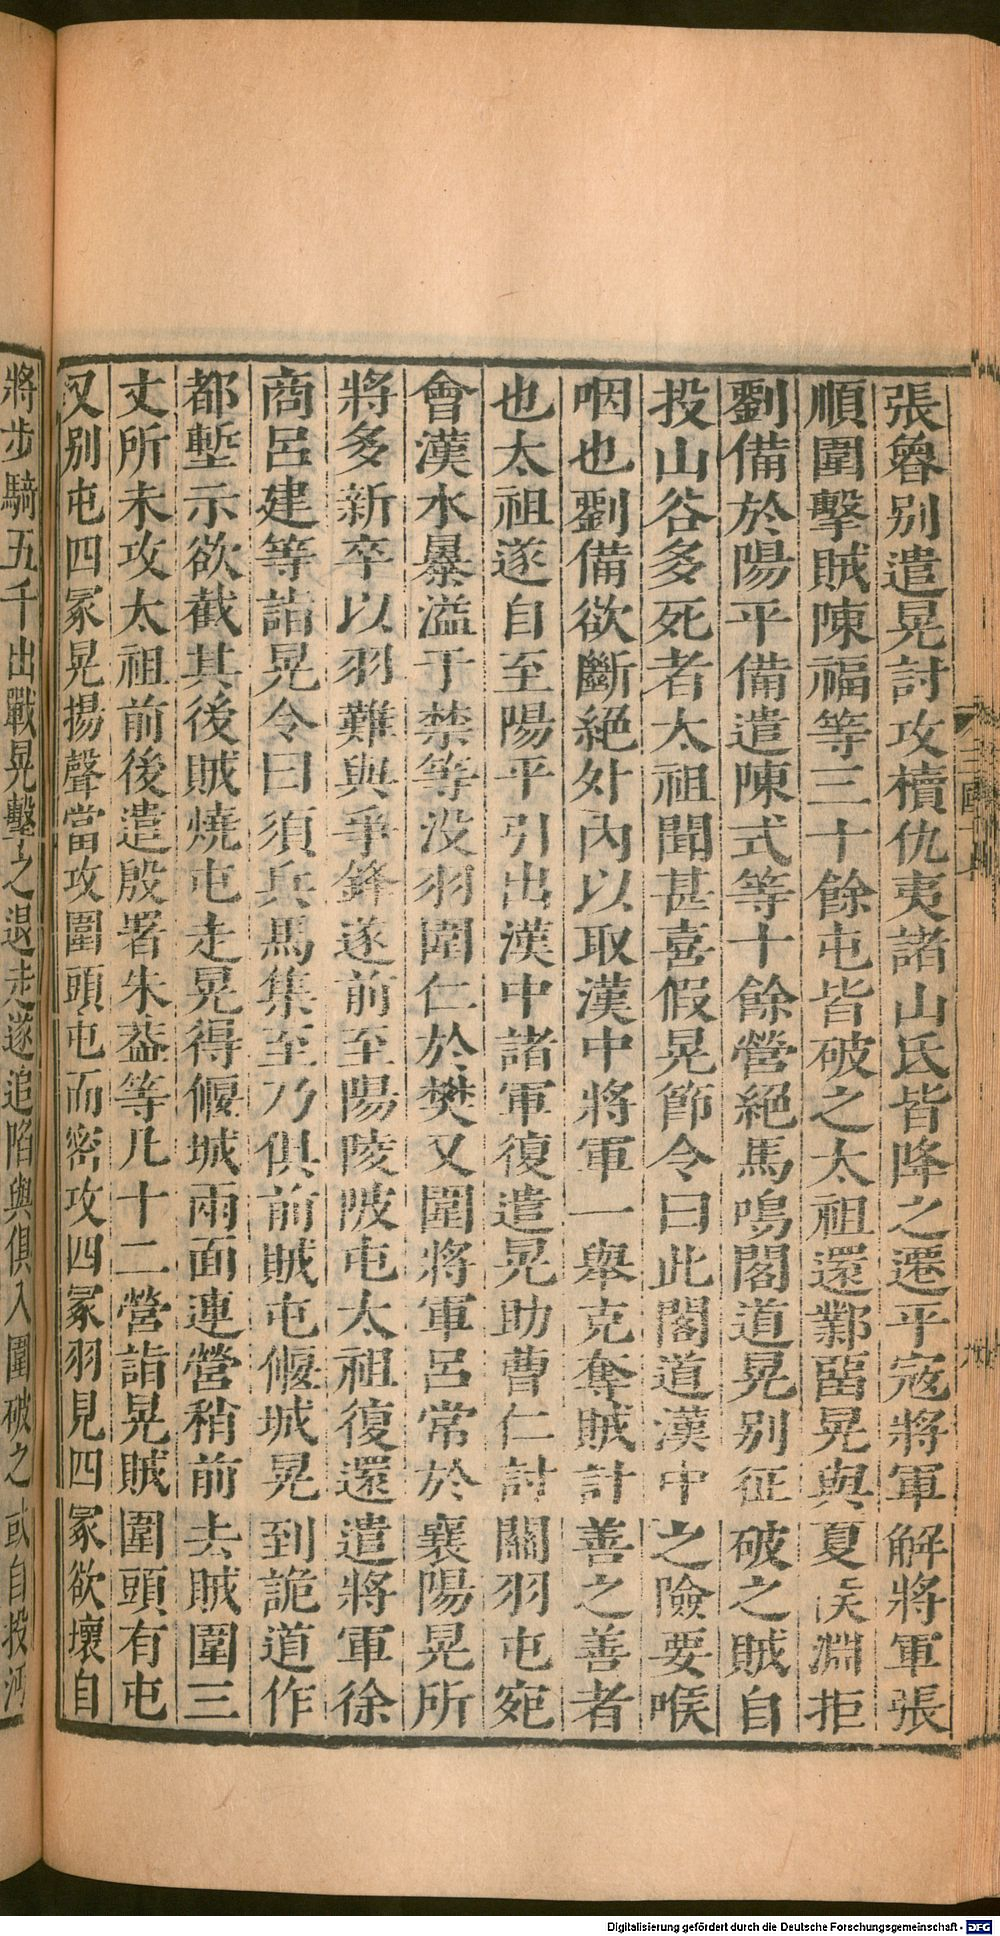 張魯別遣晃討攻櫝仇夷諸山氐皆降之遷平寇將軍解將軍張
順圍擊賊陳福等三十餘屯皆破之太祖還鄴留晃與夏侯淵拒
劉備於陽平備遣陳式等十餘營絕馬鳴閣道晃別征破之賊自
投山谷多死者太祖聞甚喜假晃節令曰此閣道漢中之險要喉
咽也劉備欲斷絕外內以取漢中將軍一舉克奪賊計善之善者
也太祖遂自至陽平引出漢中諸軍復遣晃助曹仁討關羽屯宛
會漢水暴溢于禁等没羽圍仁於樊又圍將軍呂常於襄陽晃所
將多新卒以羽難與爭鋒遂前至陽陵陂屯太祖復還遣將軍徐
商呂建等詣晃令曰須兵馬集至乃俱前賊屯偃城晃到詭道作
都塹示欲截其後賊燒屯走晃得偃城兩面連營稍前去賊圍三
丈所未攻太祖前後遣殷署朱蓋等凡十二營詣晃賊圍頭有屯
又別屯四冢晃揚聲當攻圍頭屯而密攻四冢羽見四冢欲壞自
將步騎五千出戰晃擊之退走遂追陷與俱入圍破之或自投沔
Digitalisierung gefördert durch die Deutsche Forschungsgemeinschaft - DFG